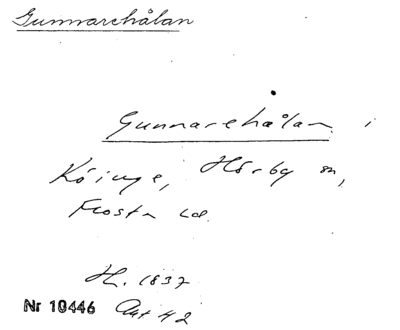 Gunnarehålan
Gunnarehålan i
Köinge, Hörby sn,
Frosta hd.
H. 1837
Nr 10446 Akt 42